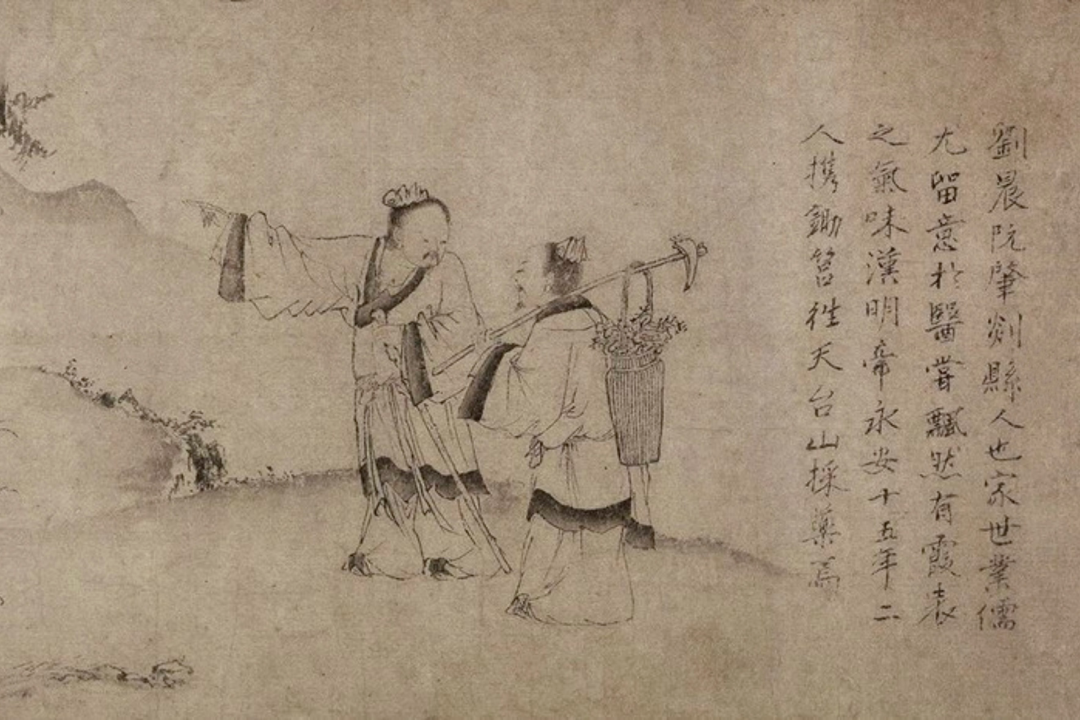 劉晨阮肇剡縣人也家世業儒
尤留意於醫嘗飄然有霞表
之氣味漢明帝永安十五年二
人携鋤筥往天台山採藥焉